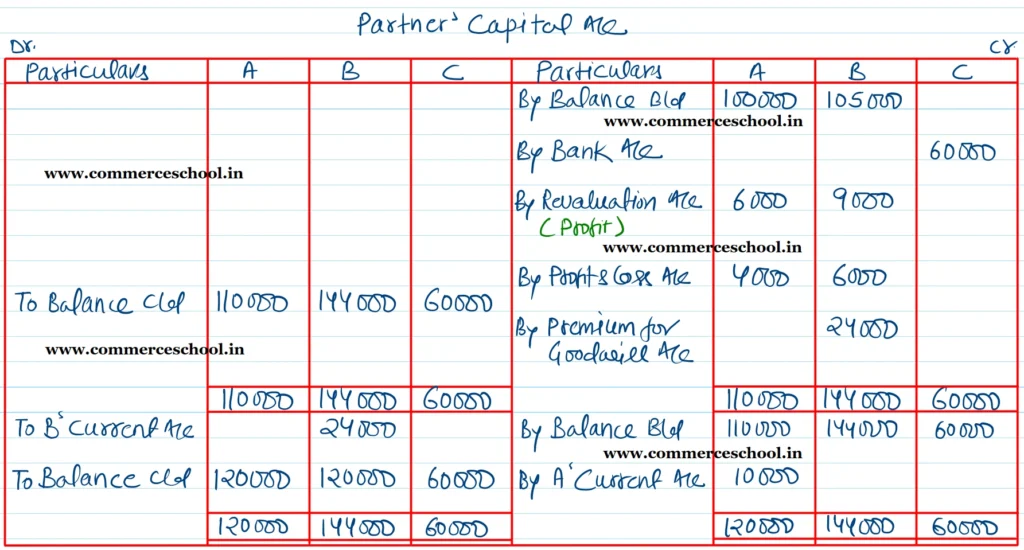 Partner's Capital A/c
Dr. Cr.
Particulars A B C Particulars A B C
By Balance B/d 100000 105000
www.commerceschool.in
By Bank A/c 60000
www.commerceschool.in
By Revaluation A/c 6000 9000
(Profit)
www.commerceschool.in
By Profit & Loss A/c 4000 6000
To Balance C/d 110000 144000 60000
By Premium for 24000
Goodwill A/c
www.commerceschool.in
110000 144000 60000 110000 144000 60000
To B's Current A/c 24000 By Balance B/d 110000 144000 60000
www.commerceschool.in
To Balance C/d 120000 120000 60000 By A's Current A/c 10000
120000 144000 60000 120000 144000 60000